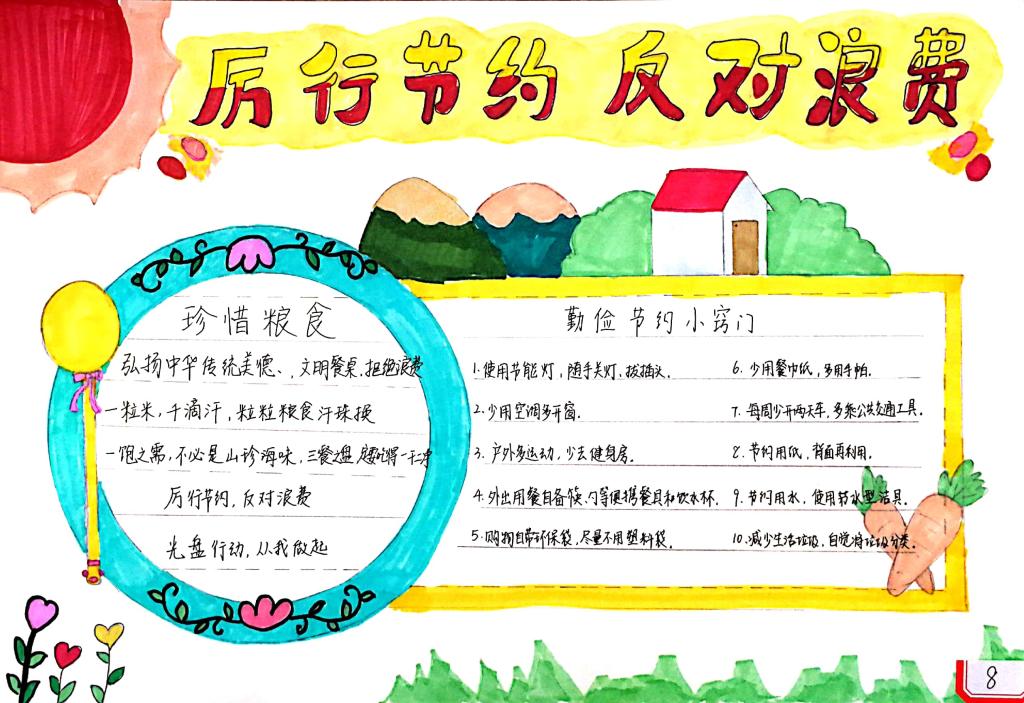 厉行节约 反对浪费
珍惜粮食
弘扬中华传统美德、,文明餐桌,拒绝浪费
一粒米,千滴汗,粒粒粮食汗珠换
一饱之需,不必是山珍海味,三餐之盘
厉行节约,反对浪费
光盘行动,从我做起
勤俭节约小窍门
1.使用节能灯,随手关灯、拔插头。
2.少用空调多开窗。
3.户外多运动,少去健身房。
4.外出用餐自备筷、勺等便携餐具和饮水杯。
5.购物自带环保袋,尽量不用塑料袋。
6.少用餐巾纸,多用手帕。
7.每周少开两天车,多乘公共交通工具。
8.节约用纸,背面再利用。
9.节约用水,使用节水型洁具。
10.减少生活垃圾,自觉将垃圾分类。
8